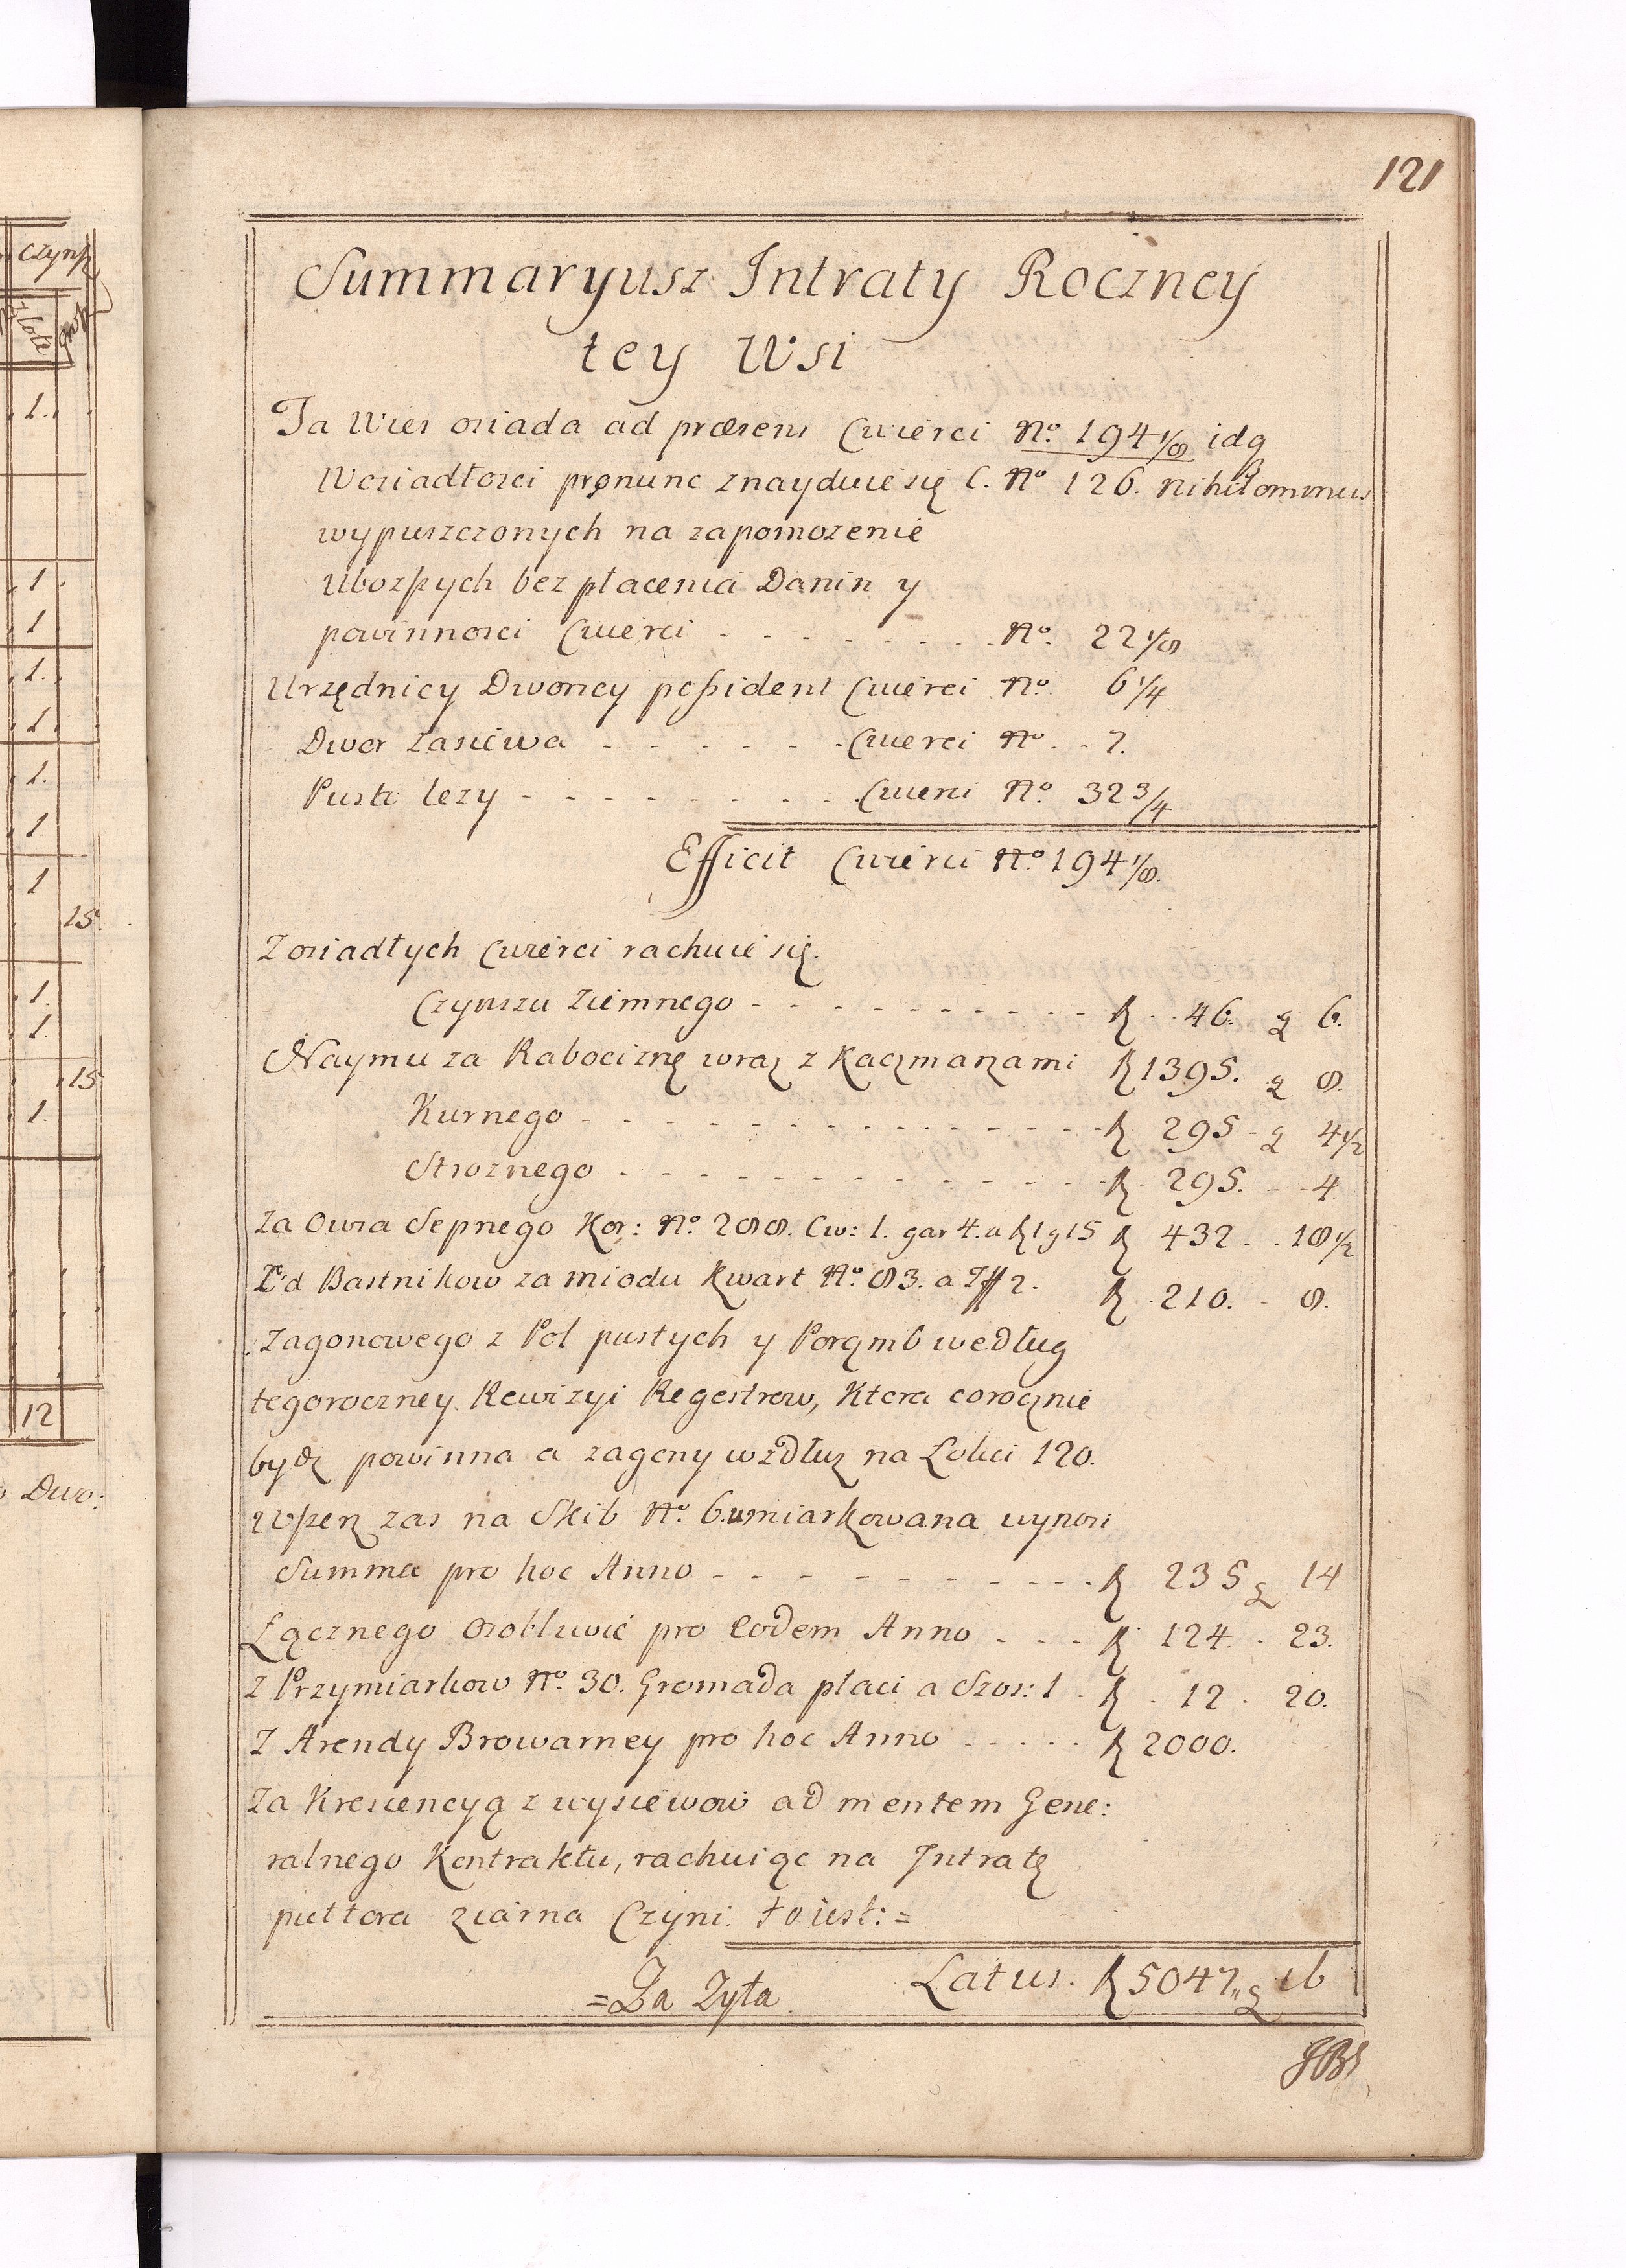 121
Summaryusz Intraty Roczney
tey Wsi
Ta Wies osiada ad præsens Cwierci No. 194 1/8 idq
Wosiadłosci pronunc znayduie się C. No 126. nihilominus
wypuszczonych na zapomozenie
Uboższych bez płacenia Danin y
powinnosci Cwierci - - - - - - - - No. 22 1/8
Urzędnicy Dworscy possident Cwierci No 6 1/4
Dwor zasiewa - - - - - - Cwierci No - . 7.
Pusto lezy - - - - - - - - - Cwierci No. 32 3/4
Efficit Cwierci No. 194 1/8.
Z osiadłych Cwierci rachuie się.
Czynszu Ziemnego - - - - - - - - - - R - . 46. g 6.
Naymu za Rabociznę wraz z Kaczmarzami R 1395. g 8.
Kurnego - - - - - - - - - - - - - - - R 295 - g 4 1/2
Stroznego - - - - - - - - - - - - - - R. 295. - - 4.
Za Owsa Sepnego Kor: No 288. Cw: 1. gar 4. a R 1 g 15 R 432 . . 18 1/2
Od Bartnikow za miodu Kwart No. 83. a Tff 2. R . 210. - 8.
Zagonowego z Pol pustych y Porąmb według
tegoroczney Rewizyi Regestrow, Ktora corocznie
bydz powinna a zagony wzdłuz na Lokci 120.
Wszerz zas na Skib No. 6. umiarkowana wynosi
Summa pro hoc Anno - - - - - - - - - - R 235 g 14
Łącznego osobliwie pro eodem Anno - - - R 124. - 23.
Z Przymiarkow No. 30. Gromada płaci a Szos: 1 . R . 12 . 20.
Z Arendy Browarney pro hoc Anno - - - - - R 2000.
Za Krescencyą z wysiewow ad mentem Gene:
ralnego Kontraktu, rachuiąc na Intratę
pułtora ziarna Czyni. to iest: =
Latus. R 5047 „ g 16
= Za Zyta.
czynsz
złote
1.
1.
1.
1.
1.
1.
1.
1
15.
1.
1.
15
1.
12
Dwo: